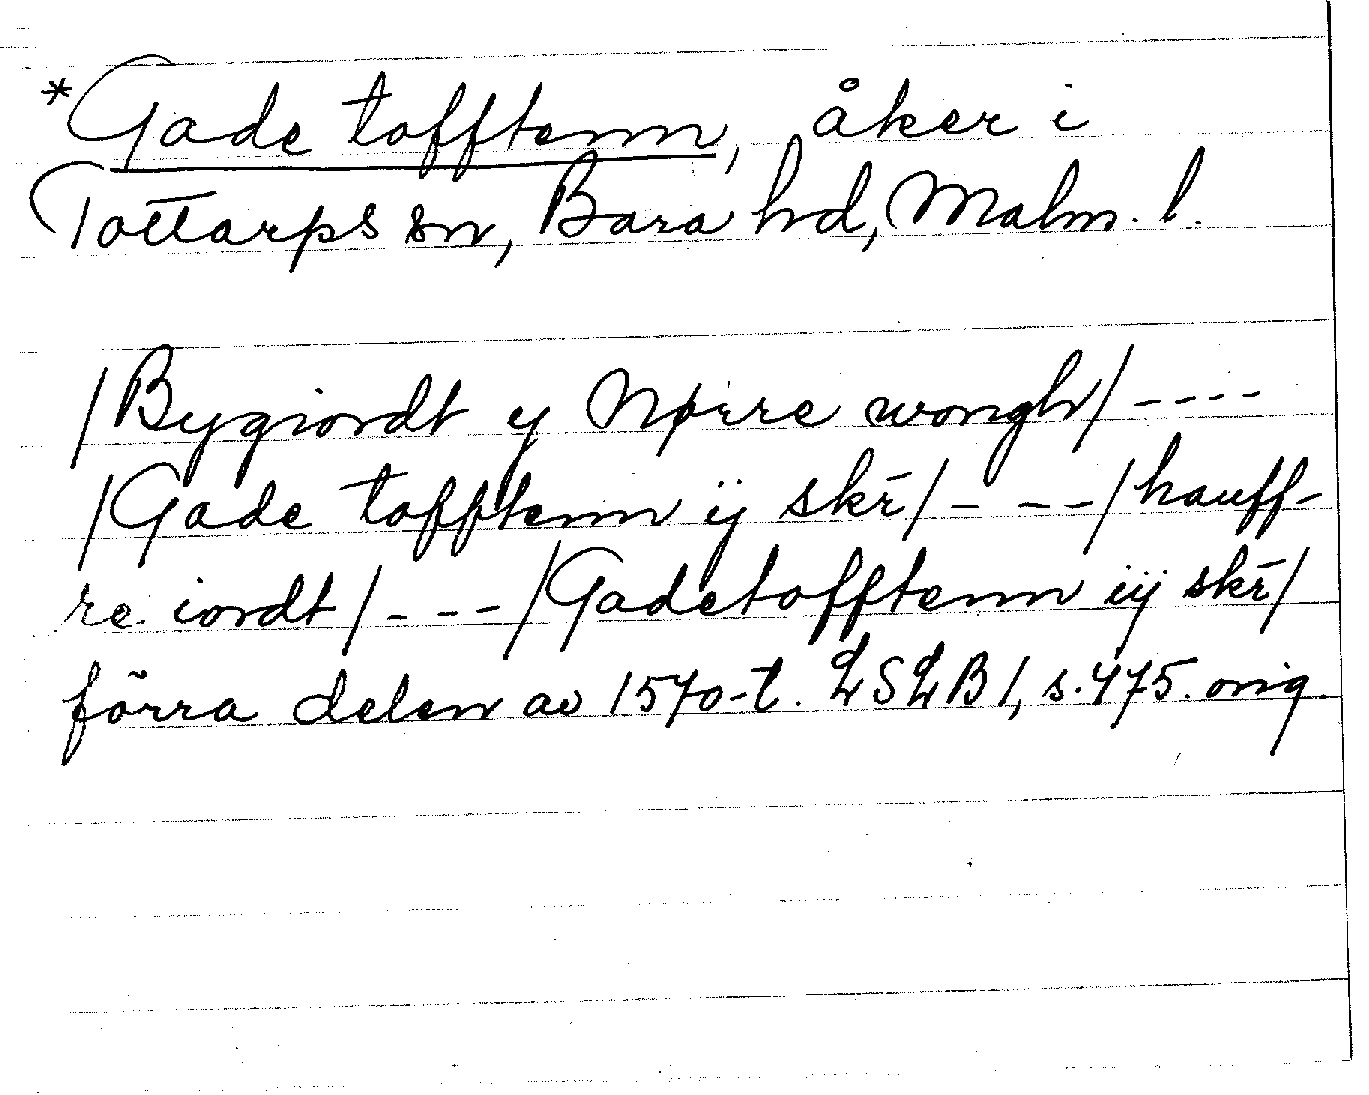 *Gade tofftenn, åker i
Tottarps sn, Bara hd, Malm. l.
/Bygiordt y Nørre wongh/ ----
/Gade tofftenn ij skr̄/ - --/hauff-
re iordt/ ---/Gadetofftenn iij skr̄/
förra delen av 1570-t. LSLB 1, s. 475. orig.